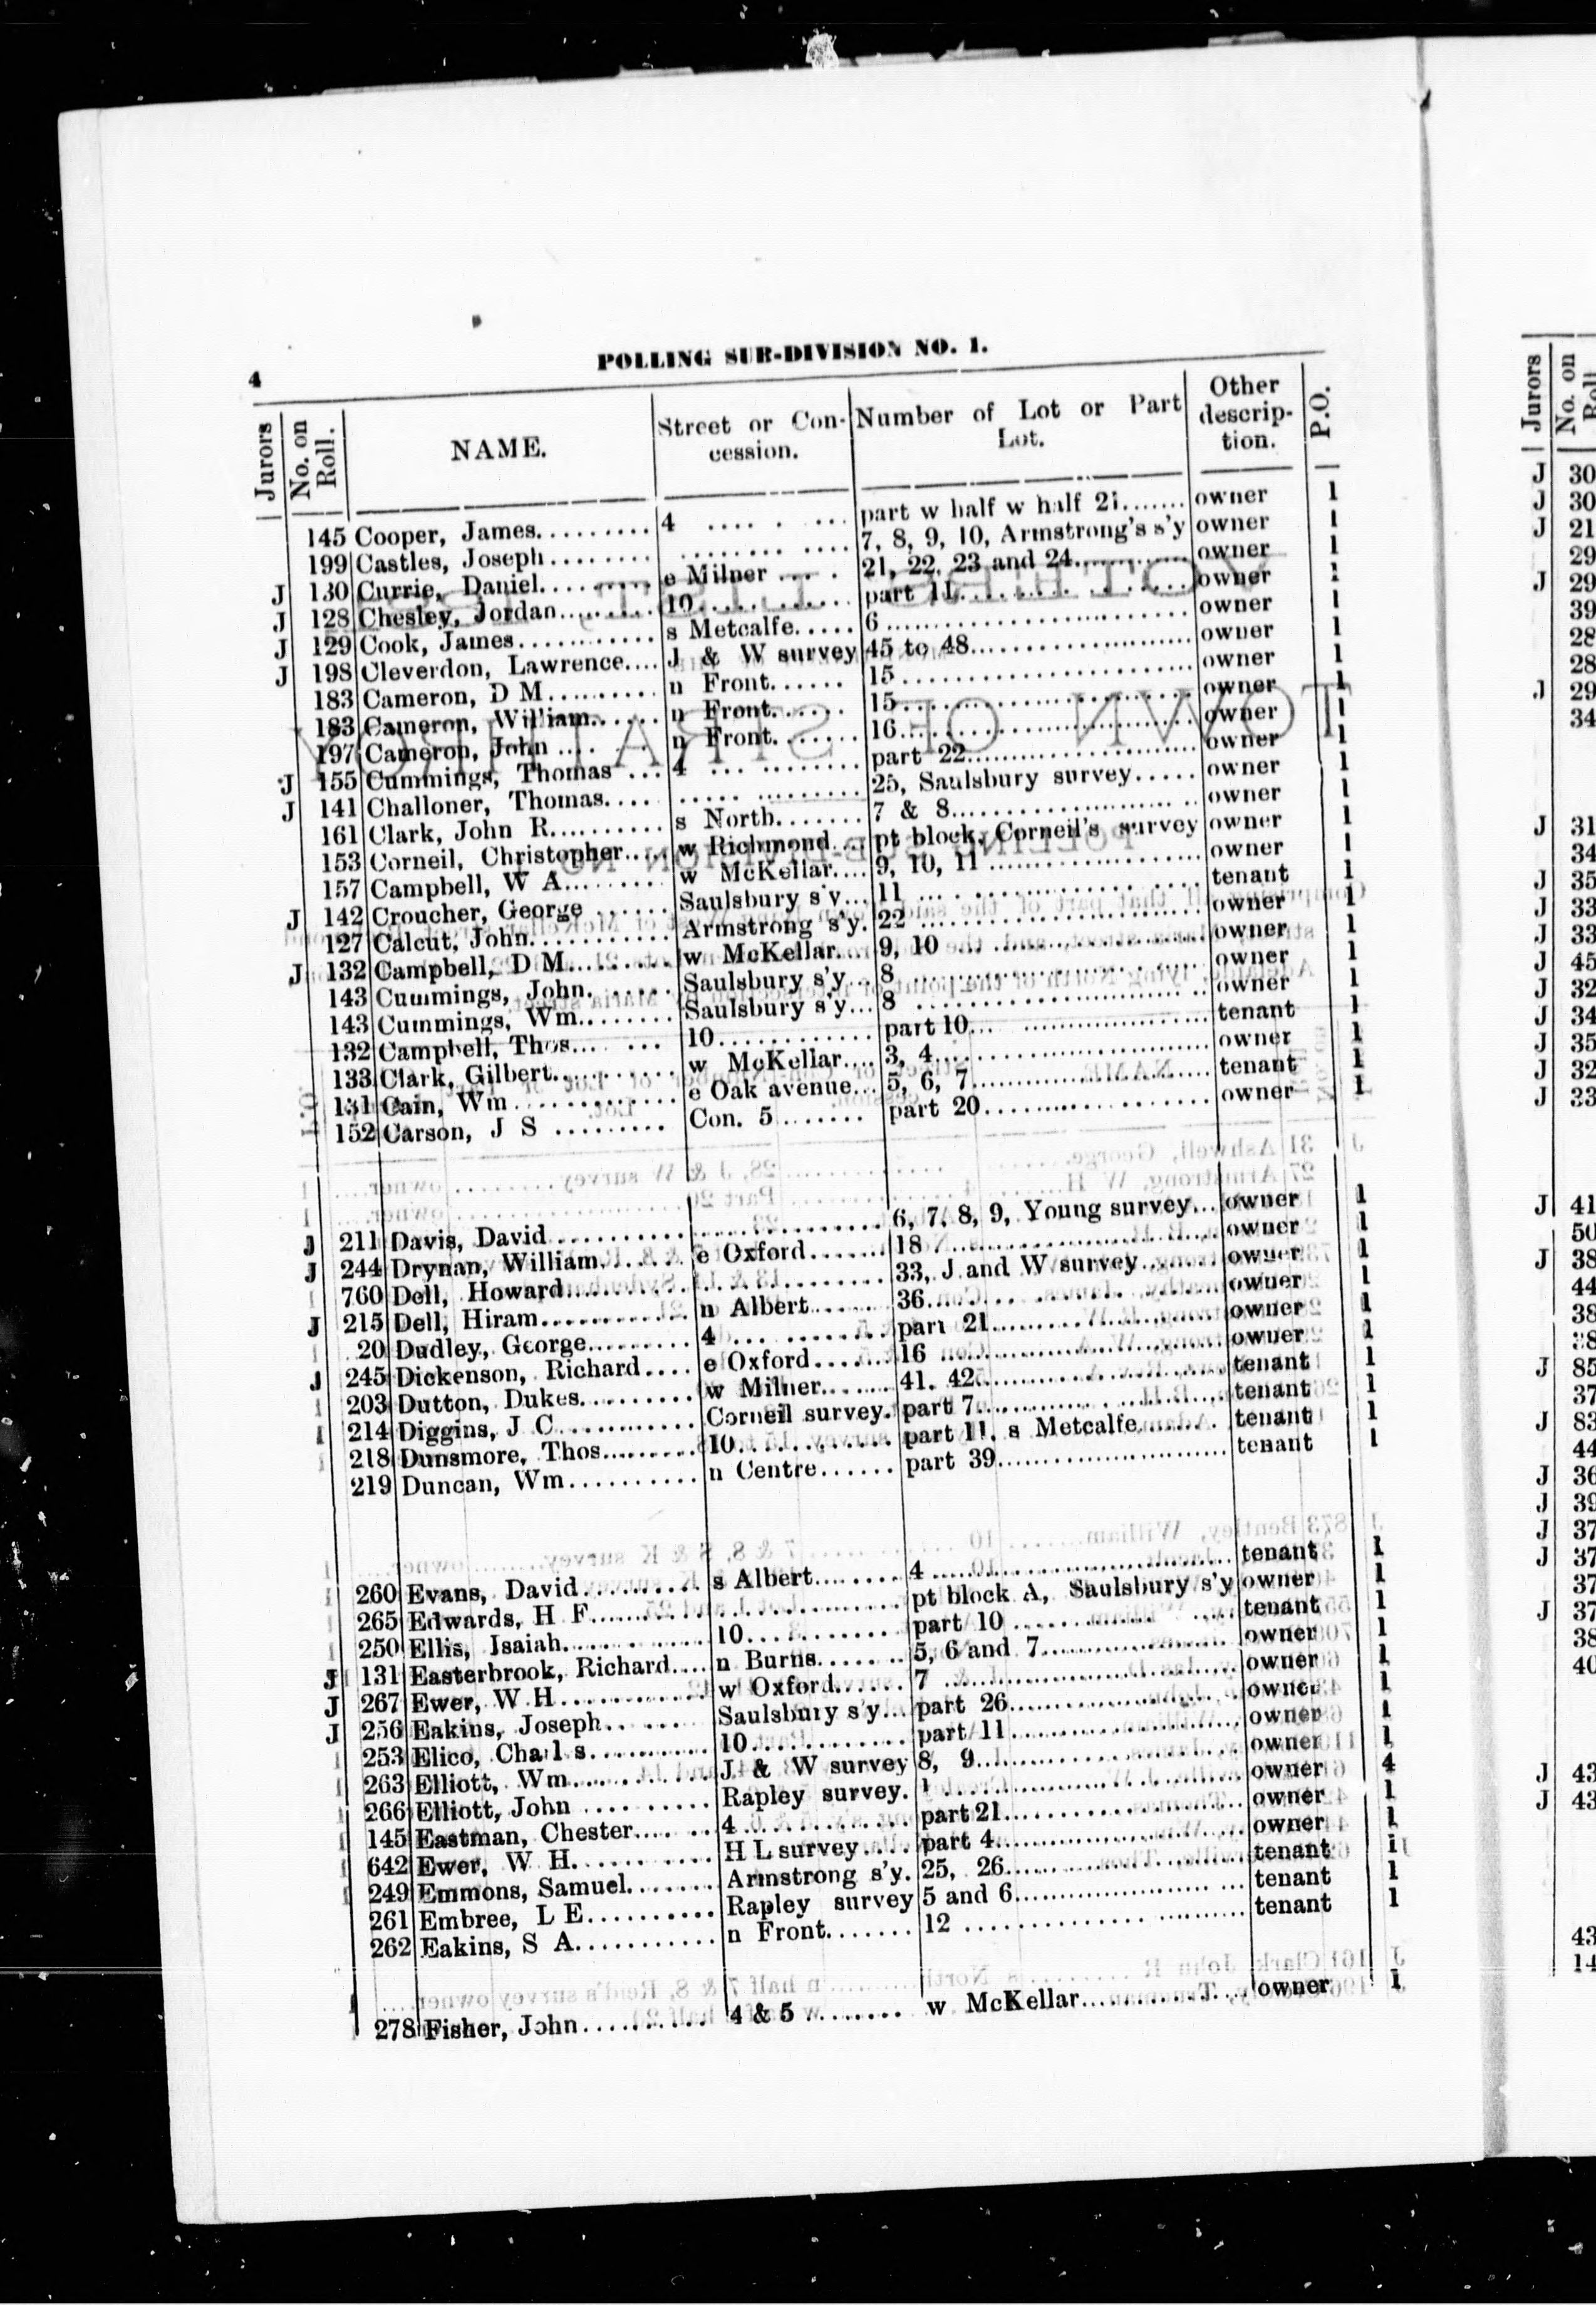 POLLING SUB-DIVISION NO. 1.
4
Jurors No. on Roll. NAME. Street or Concession. Number of Lot or Part Lot. Other description. P.O.
145 Cooper, James.......... 4 .... . ... part w half w half 21....... owner 1
199 Castles, Joseph......... ............ 7, 8, 9, 10, Armstrong's s'y owner 1
J 130 Currie, Daniel.......... e Milner .... . 21, 22, 23 and 24............ owner 1
J 128 Chesley, Jordan......... 10............ part 11..................... owner 1
J 129 Cook, James............ s Metcalfe..... 6........................... owner 1
J 198 Cleverdon, Lawrence.... J & W survey 45 to 48.................... owner 1
183 Cameron, D M.......... n Front...... 15........................... owner 1
183 Cameron, William....... n Front....... 15........................... owner 1
197 Cameron, John .... .... n Front....... 16........................... owner 1
J 155 Cummings, Thomas ... 4 ... ......... part 22..................... owner 1
J 141 Challoner, Thomas.... ...... ......... 25, Saulsbury survey..... owner 1
161 Clark, John R.......... s North....... 7 & 8...................... owner 1
153 Corneil, Christopher.... w Richmond... pt block, Corneil's survey owner 1
157 Campbell, W A......... w McKellar.... 9, 10, 11 .................. owner 1
J 142 Croucher, George ...... Saulsbury s'y... 11 ........................ tenant 1
127 Calcut, John........... Armstrong s'y. 22 ........................ owner 1
J 132 Campbell, D M......... w McKellar.... 9, 10 ..................... owner 1
143 Cummings, John....... Saulsbury s'y... 8......................... owner 1
143 Cummings, Wm........ Saulsbury s'y... 8 ........................ owner 1
132 Campbell, Thos.... ... 10............. part 10... .................. tenant 1
133 Clark, Gilbert.......... w McKellar.... 3, 4...................... owner 1
131 Cain, Wm ............. e Oak avenue... 5, 6, 7.................... tenant 1
152 Carson, J S ......... Con. 5........ part 20................... owner 1
J 211 Davis, David ........... .............. 6, 7, 8, 9, Young survey... owner 1
J 244 Drynan, William....... e Oxford....... 18 ....................... owner 1
760 Dell, Howard.......... .............. 33, J and W survey ....... owner 1
J 215 Dell, Hiram............ n Albert........ 36........................ owner 1
20 Dudley, George......... 4 ... ......... part 21................... owner 1
J 245 Dickenson, Richard.... e Oxford....... 16 ....................... owner 1
203 Dutton, Dukes.......... w Milner....... 41, 42.................... tenant 1
214 Diggins, J C............ Corneil survey. part 7................... tenant 1
218 Dunsmore, Thos........ 10............ part 11, s Metcalfe....... tenant 1
219 Duncan, Wm........... n Centre...... part 39................... tenant 1
260 Evans, David.......... s Albert........ 4 ....................... tenant 1
265 Edwards, H F.......... ............. pt block A, Saulsbury s'y owner 1
250 Ellis, Isaiah............ 10............ part 10 ................. tenant 1
J 131 Easterbrook, Richard.... n Burns....... 5, 6 and 7............... owner 1
J 267 Ewer, W H............ w Oxford...... 7 ...................... owner 1
J 256 Eakins, Joseph........ Saulsbury s'y... part 26................. owner 1
253 Elico, Charl s.......... 10............ part 11 ................ owner 1
263 Elliott, Wm............ J & W survey 8, 9.................... owner 1
266 Elliott, John .......... Rapley survey. 1 ..................... owner 4
145 Eastman, Chester....... 4 ............ part 21................. owner 1
642 Ewer, W H........... H L survey.... part 4.................. owner 1
249 Emmons, Samuel....... Armstrong s'y. 25, 26................. tenant 1
261 Embree, L E.......... Rapley survey 5 and 6................. tenant 1
262 Eakins, S A........... n Front....... 12 .................... tenant 1
278 Fisher, John.......... 4 & 5 ........ w McKellar............ owner 1